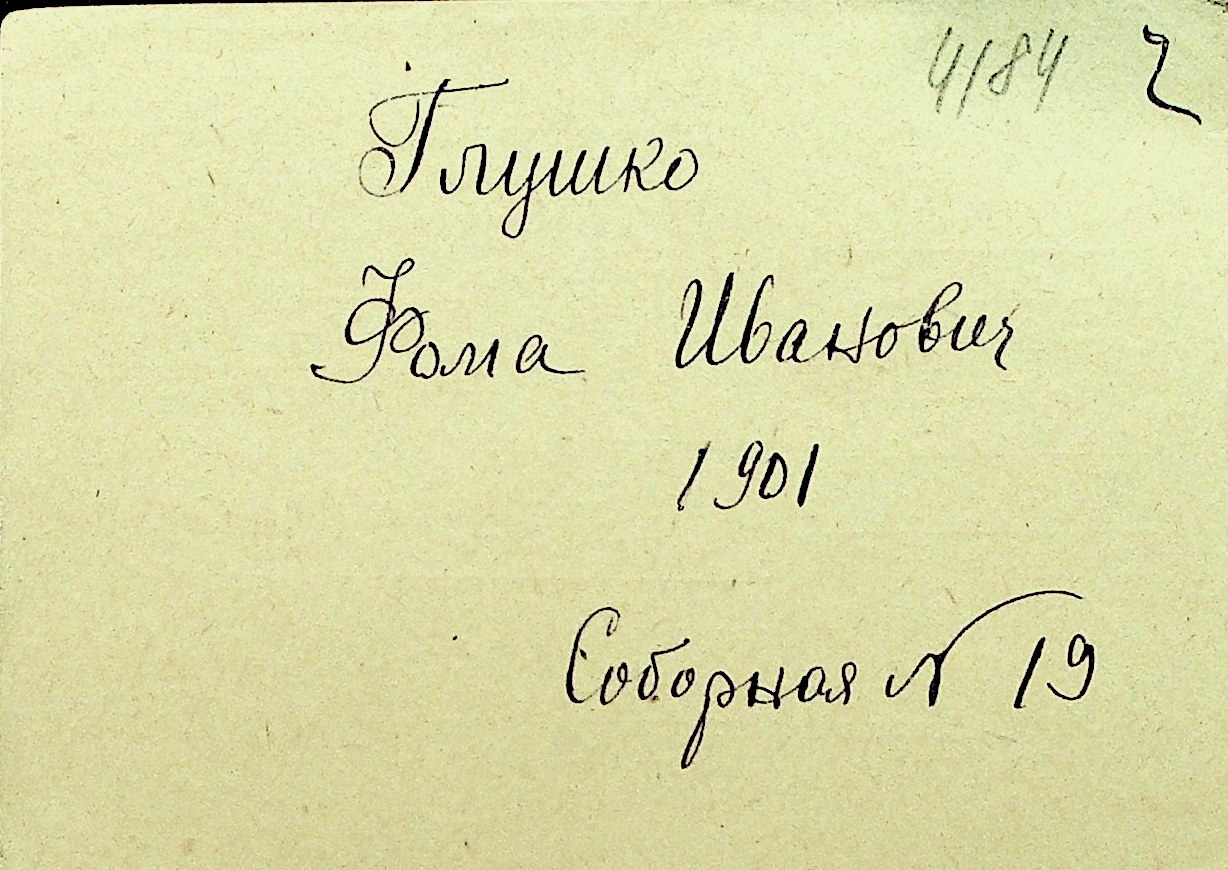 4184
Глушко
Фома Иванович
1901
Соборная № 19